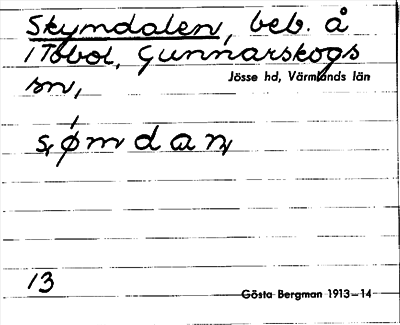 Skymdalen, beb. å
1 Tobol, Gunnarskogs
Jösse hd, Värmlands län
sn,
sømdan
13
Gösta Bergman 1913–14